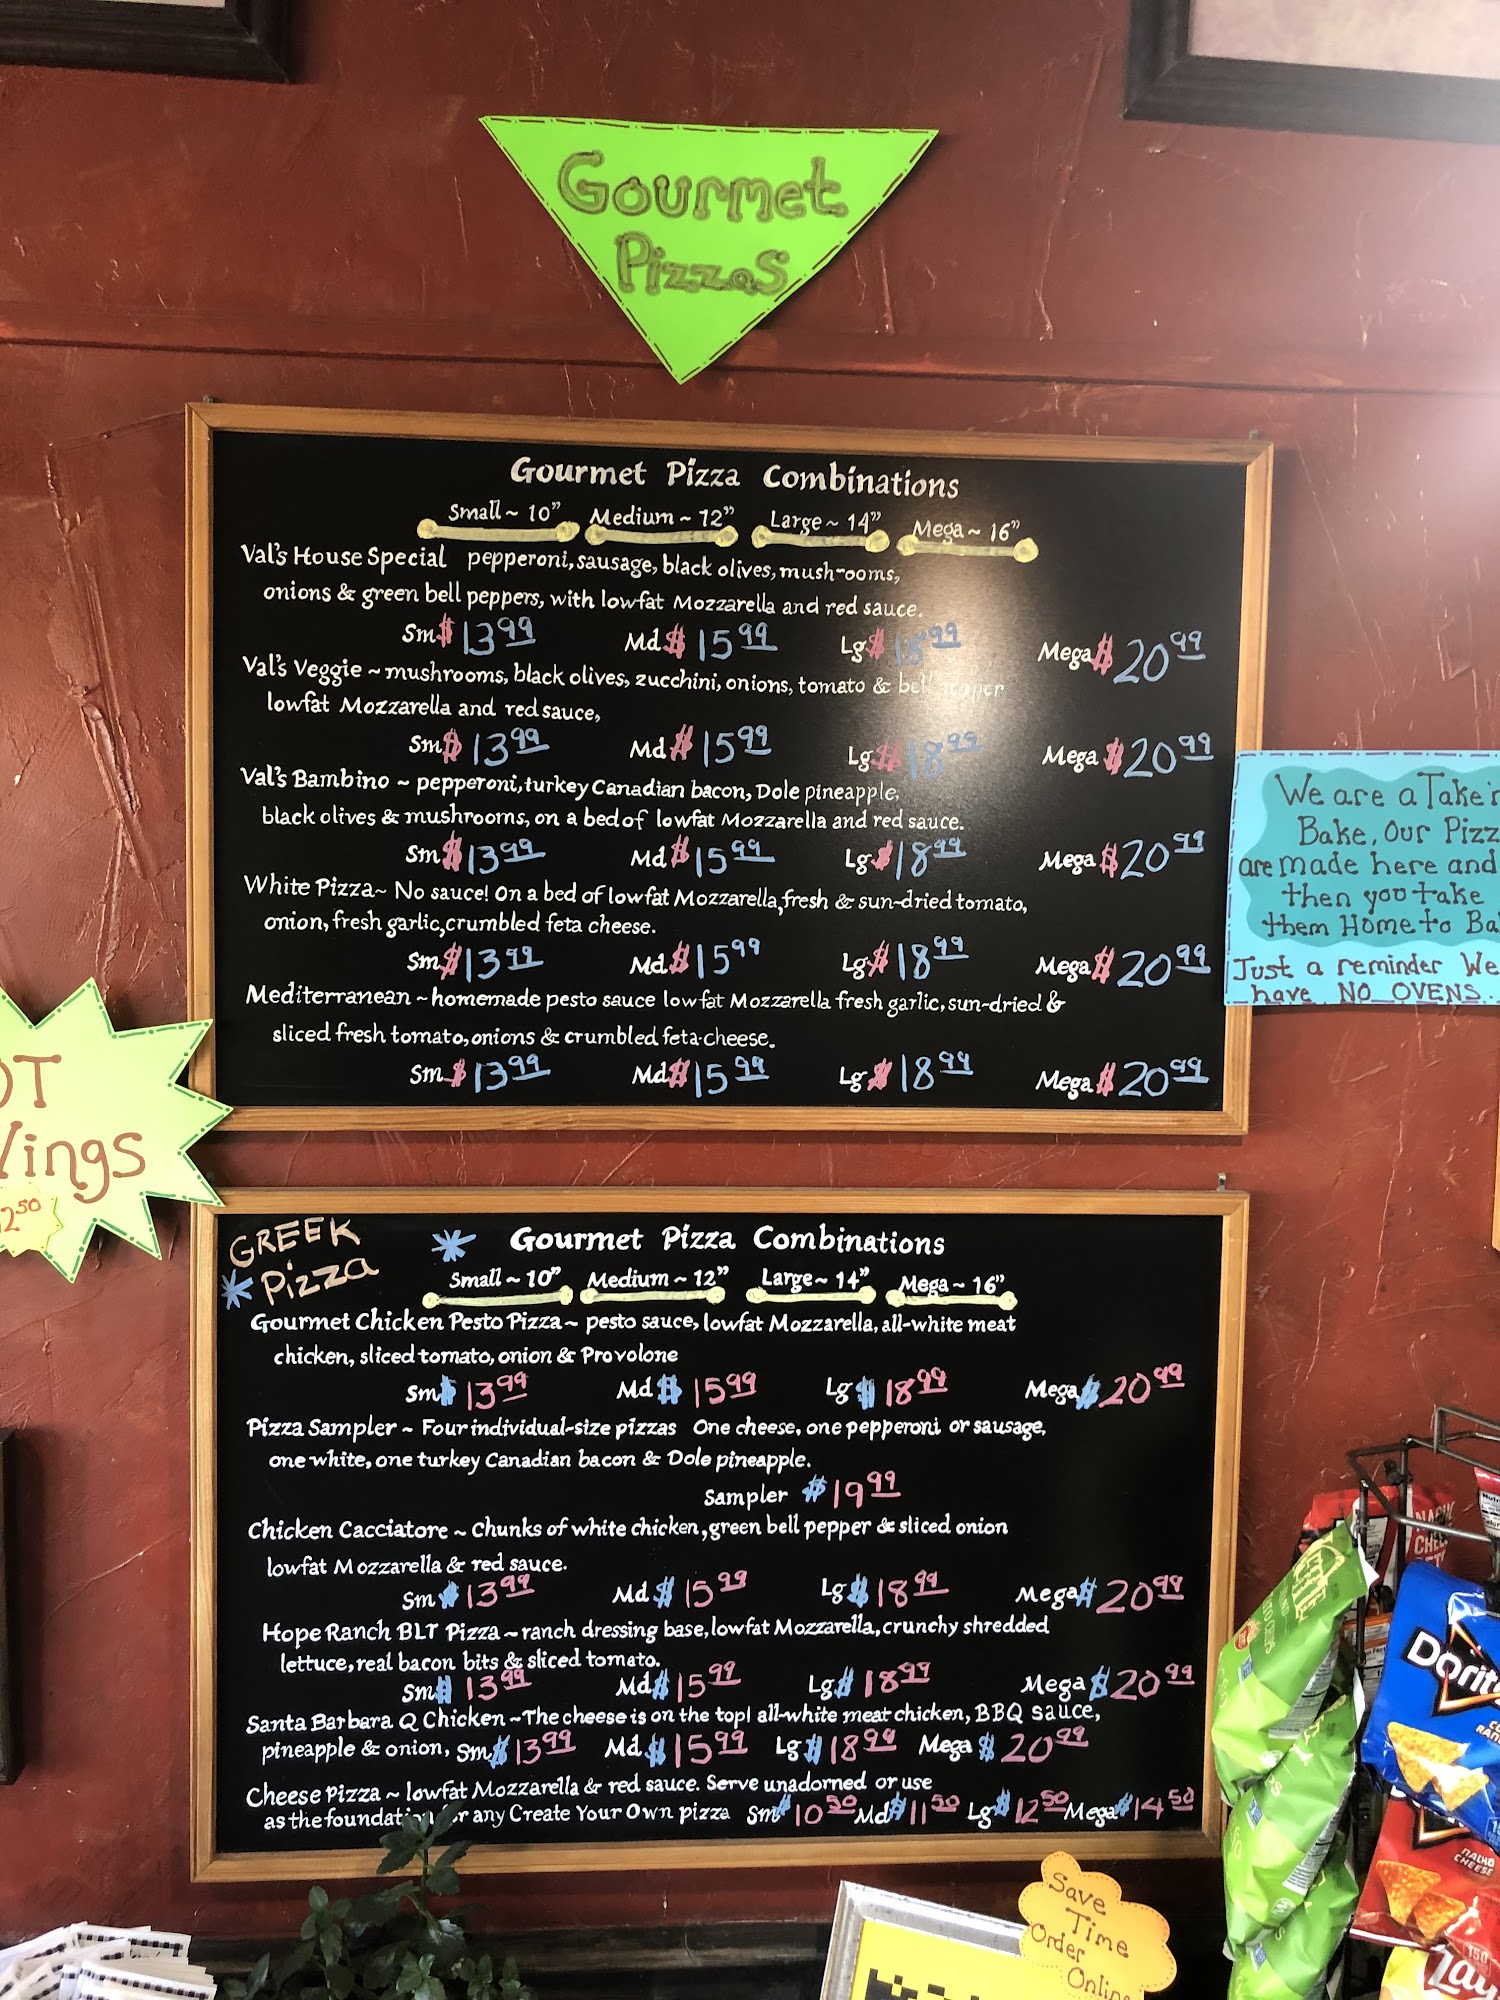 Gourmet
Pizzas
Gourmet Pizza Combinations
Small ~ 10" Medium ~ 12" Large ~ 14" Mega ~ 16"
Val's House Special pepperoni, sausage, black olives, mush-ooms,
onions & green bell peppers, with lowfat Mozzarella and red sauce.
Sm $13.99 Md $15.99 Lg $18.99 Mega $20.99
Val's Veggie ~ mushrooms, black olives, zucchini, onions, tomato & bell pepper
lowfat Mozzarella and red sauce,
Sm $13.99 Md $15.99 Lg $18.99 Mega $20.99
Val's Bambino ~ pepperoni, turkey Canadian bacon, Dole pineapple,
black olives & mushrooms, on a bed of lowfat Mozzarella and red sauce.
Sm $13.99 Md $15.99 Lg $18.99 Mega $20.99
White Pizza ~ No sauce! On a bed of lowfat Mozzarella, fresh & sun-dried tomato,
onion, fresh garlic, crumbled feta cheese.
Sm $13.99 Md $15.99 Lg $18.99 Mega $20.99
Mediterranean ~ homemade pesto sauce lowfat Mozzarella fresh garlic, sun-dried &
sliced fresh tomato, onions & crumbled feta cheese.
Sm $13.99 Md $15.99 Lg $18.99 Mega $20.99
We are a Take'n
Bake, Our Pizz
are made here and
then you take
them Home to Ba
Just a reminder We
have NO OVENS..
OT
Wings
2.50
GREEK
* Pizza
* Gourmet Pizza Combinations
Small ~ 10" Medium ~ 12" Large ~ 14" Mega ~ 16"
Gourmet Chicken Pesto Pizza ~ pesto sauce, lowfat Mozzarella, all-white meat
chicken, sliced tomato, onion & Provolone
Sm $13.99 Md $15.99 Lg $18.99 Mega $20.99
Pizza Sampler ~ Four individual-size pizzas One cheese, one pepperoni or sausage,
one white, one turkey Canadian bacon & Dole pineapple.
Sampler $19.99
Chicken Cacciatore ~ Chunks of white chicken, green bell pepper & sliced onion
lowfat Mozzarella & red sauce.
Sm $13.99 Md $15.99 Lg $18.99 Mega $20.99
Hope Ranch BLT Pizza ~ ranch dressing base, lowfat Mozzarella, crunchy shredded
lettuce, real bacon bits & sliced tomato.
Sm $13.99 Md $15.99 Lg $18.99 Mega $20.99
Santa Barbara Q Chicken ~ The cheese is on the top! all-white meat chicken, BBQ sauce,
pineapple & onion, Sm $13.99 Md $15.99 Lg $18.99 Mega $20.99
Cheese Pizza ~ lowfat Mozzarella & red sauce. Serve unadorned or use
as the foundation for any Create Your Own pizza Sm $10.50 Md $11.50 Lg $12.50 Mega $14.50
Save
Time
Order
Online
Dorit
NACHO
CHEESE
Lay